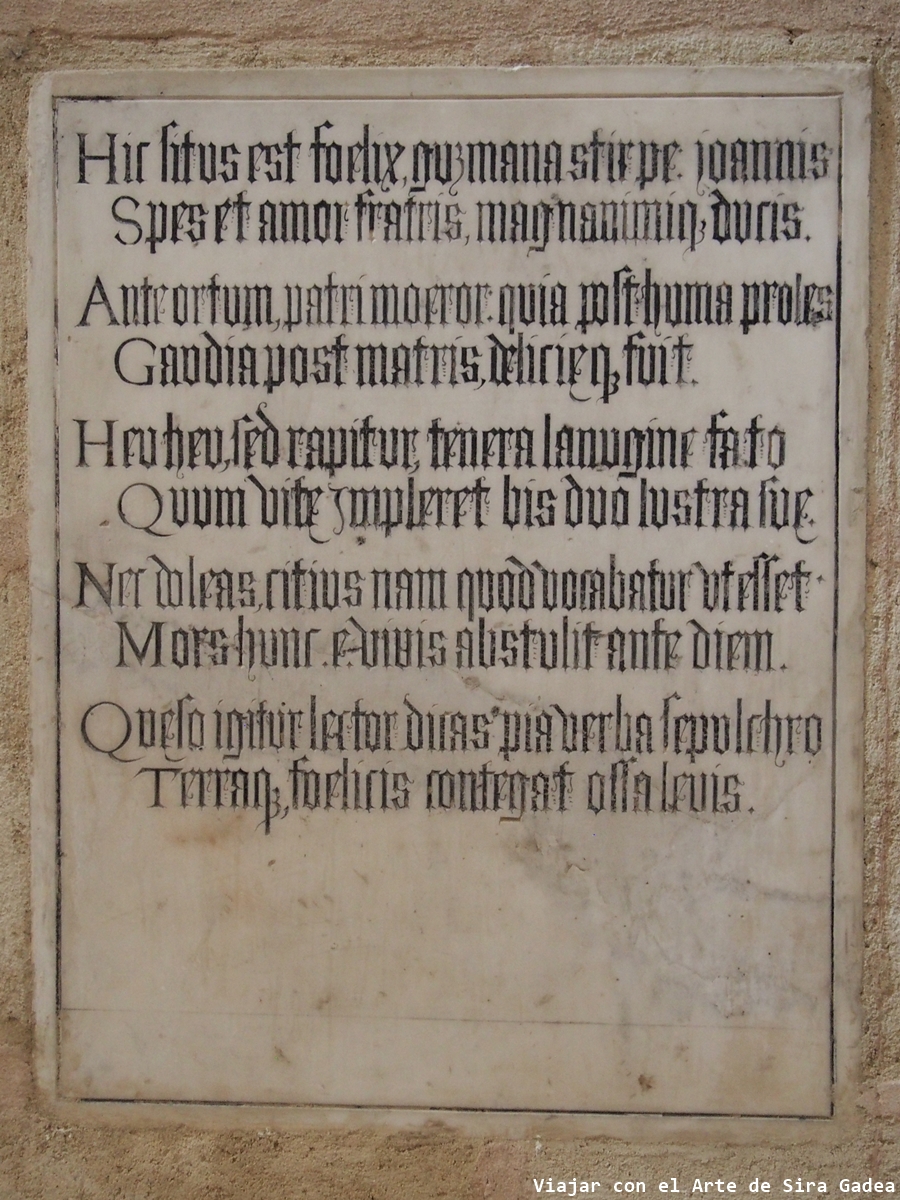 Hic situs est foelix, guzmana stirpe. joannis
Spes et amor fratris, magnanimiq; ducis.
Ante ortum, patri moeror: quia posthuma proles
Gaudia post matris, delicięq; fuit.
Heu heu, sed rapitur, tenera lanugine fato
Quum vitę impleret bis duo lustra suę.
Nec doleas, citius nam quod vocabatur vt esset
Mors hunc e vivis abstulit ante diem.
Queso igitur lector dicas pia verba sepulchro
Terraq;, foelicis contegat ossa levis.
Viajar con el Arte de Sira Gadea